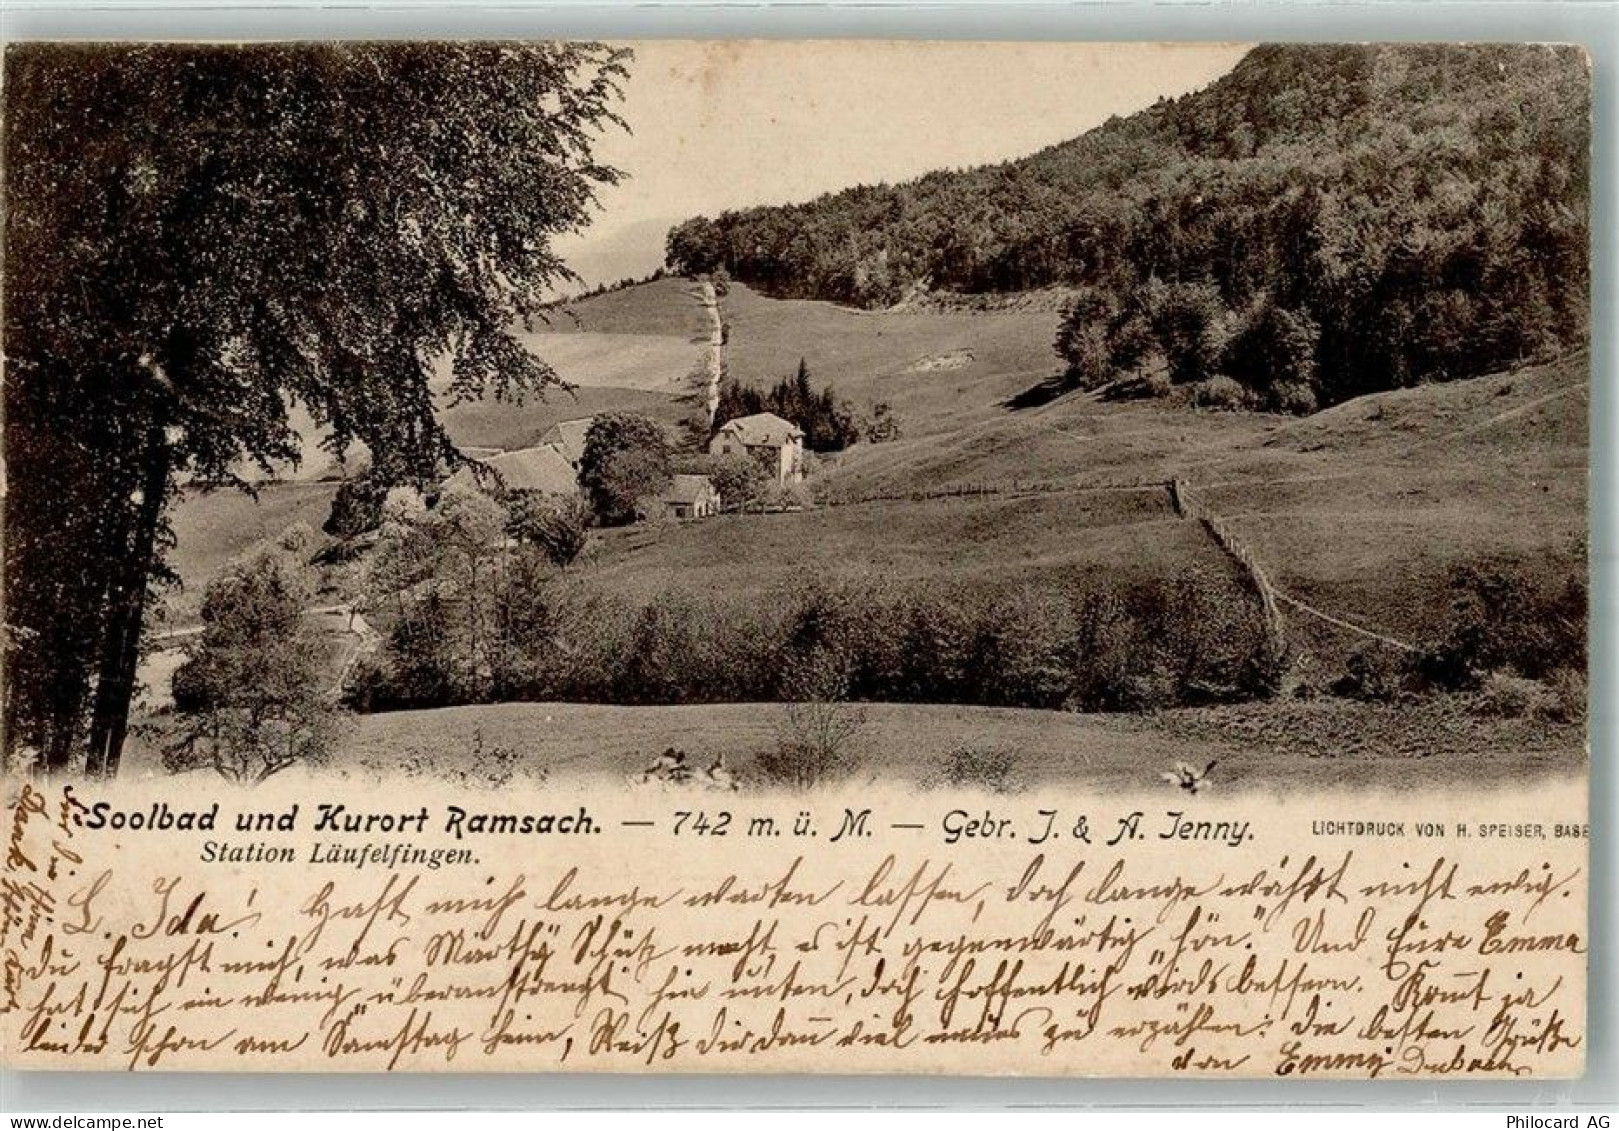 Soolbad und Kurort Ramsach. — 742 m. ü. M. — Gebr. J. & A. Jenny.
Station Läufelfingen.
LICHTDRUCK VON H. SPEISER, BASE
L. Ida! Hast mich lange warten lassen, doch lange währt nicht ewig.
Du fragst mich, was Märthy Schütz macht, es ist gegenwärtig "hön." Und Eure Emma
hat sich ein wenig "überanstrengt" hie unten, doch hoffentlich wirds bessern. Kommt ja
leider schon am Samstag heim, Weiß Dir dann viel neues zu erzählen: die besten Grüße
von Emmy
Philocard AG